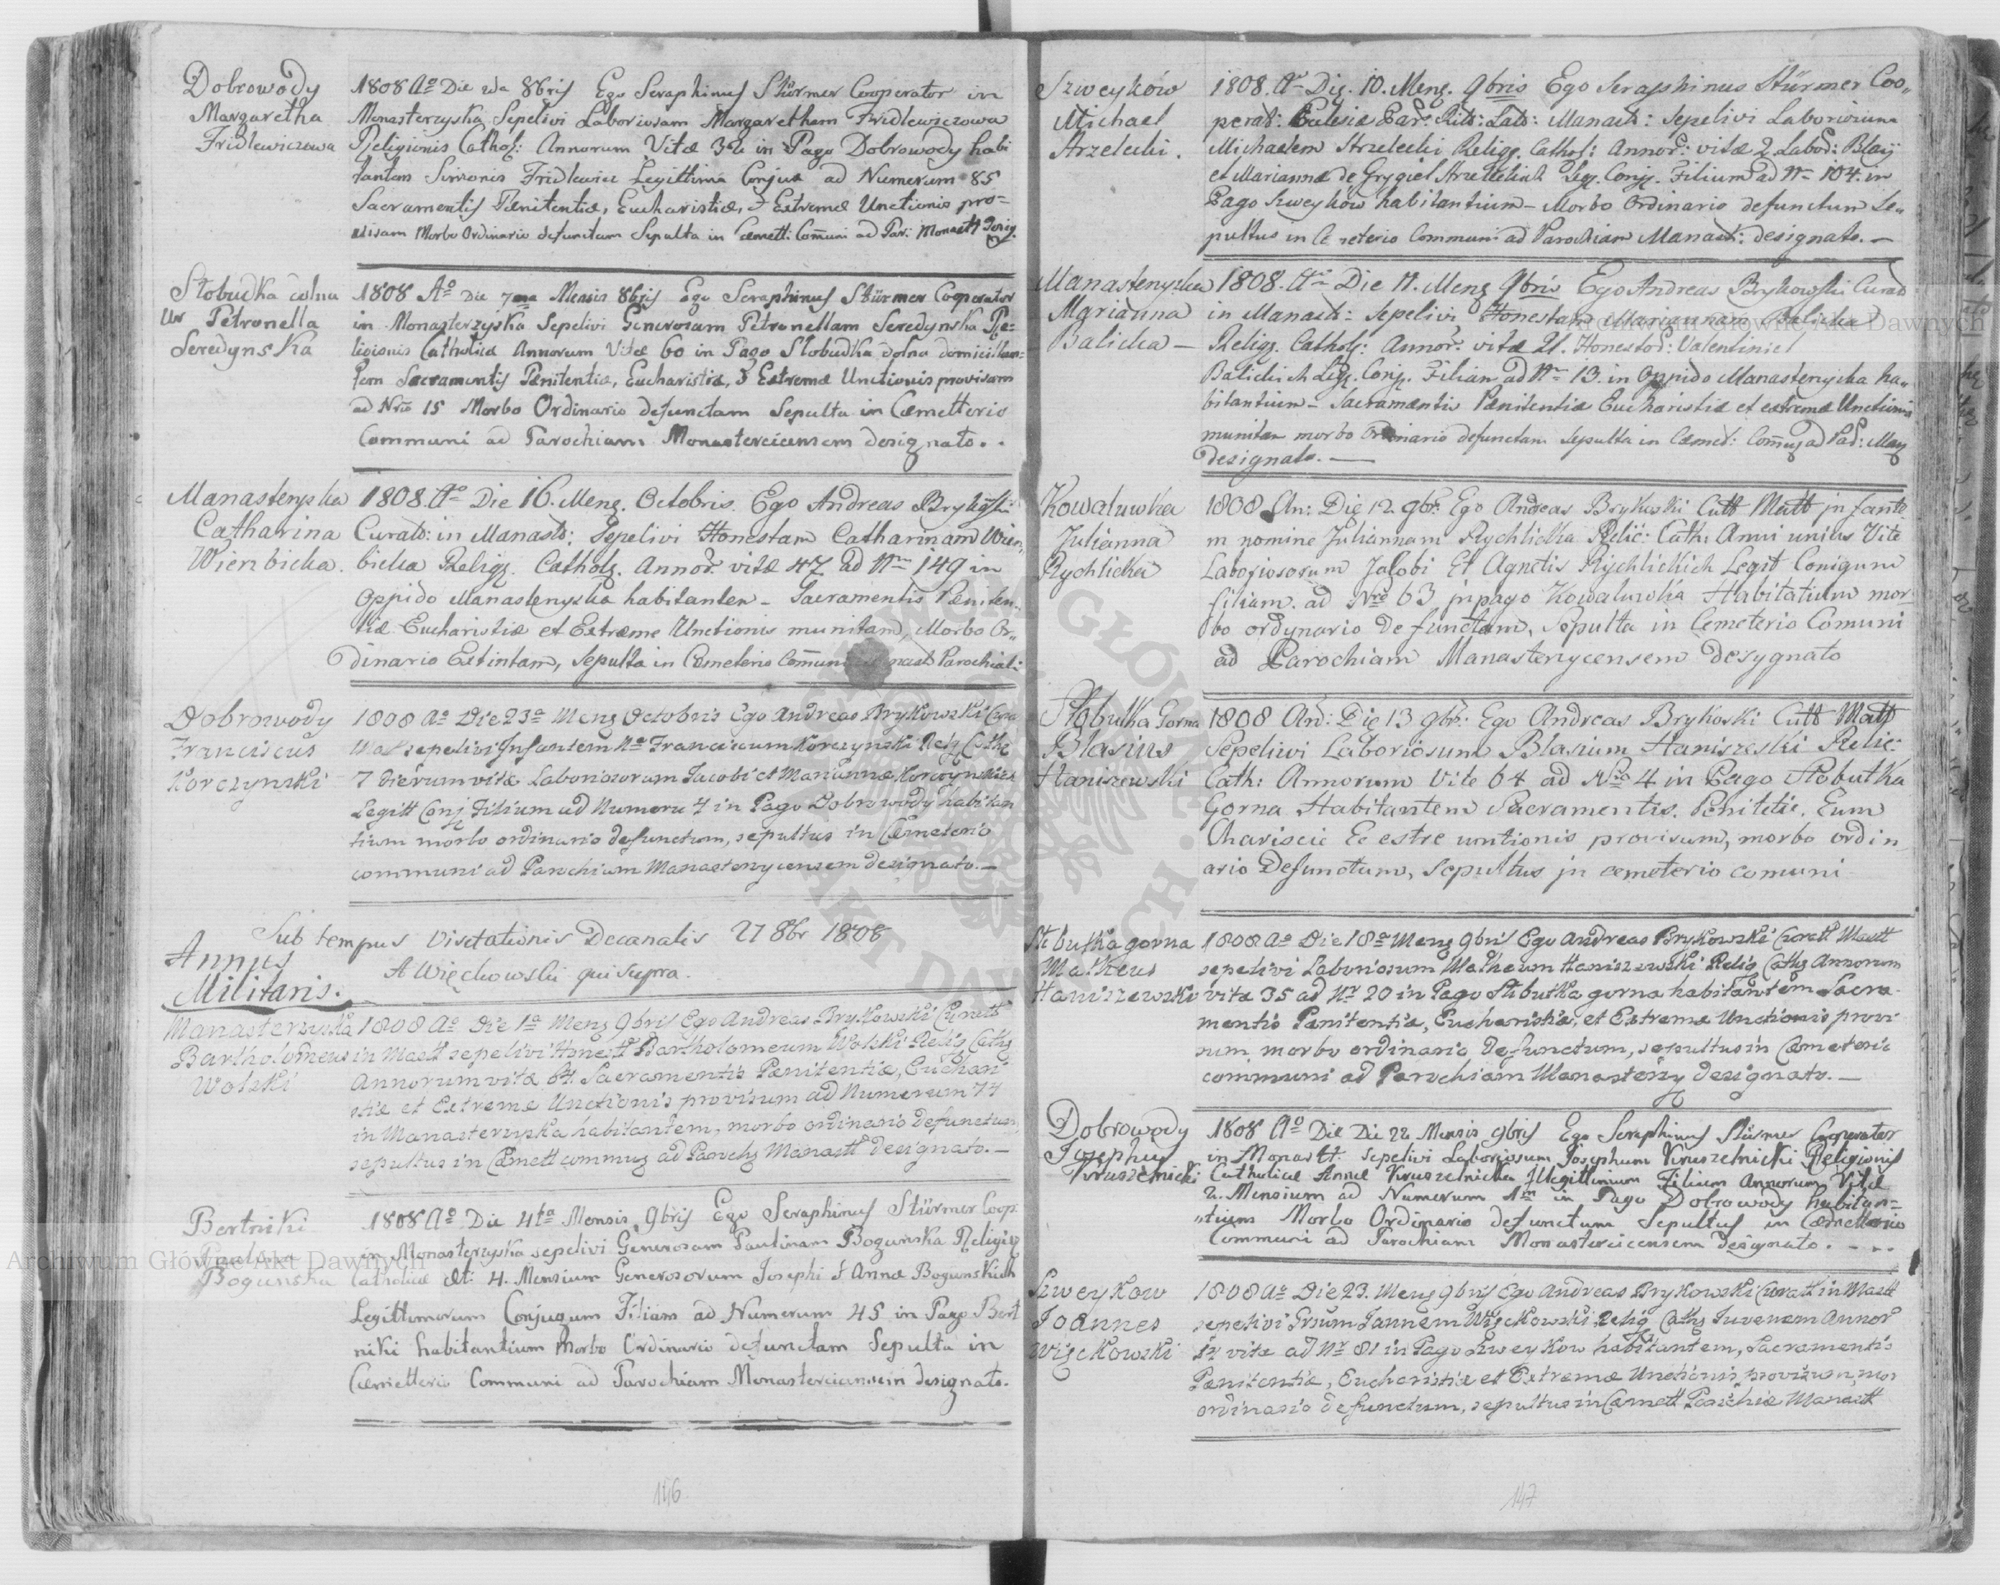 Dobrowody
Margaretha
Fridlewiczowa
1808 Aº Die 2da 8bris Ego Seraphinus Stürmer Cooperator in
Monasterzyska Sepelivi Laboriosam Margaretham Fridlewiczowa
Religionis Cathol: Annorum Vitæ 32 in Pago Dobrowody habi
tantem Simonis Fridlewicz Legittima Conjux ad Numerum 85
Sacramentis Pænitentiæ, Eucharistiæ, & Extremæ Unctionis pro-
visam Morbo Ordinario defunctam Sepulta in Cæmett: Com̃uni ad Par: Monast: Desig.
Słobudka dolna
Petronella
Seredynska
1808 Aº Die 7ma Mensis 8bris Ego Seraphinus Stürmer Cooperator
in Monasterzyska Sepelivi Generosam Petronellam Seredynska Re-
ligionis Catholicæ Annorum Vitæ 60 in Pago Słobudka dolna domicilian-
tem Sacramentis Pænitentiæ, Eucharistiæ, & Extremæ Unctionis provisam
ad Nro 15 Morbo Ordinario defunctam Sepulta in Cæmetterio
Communi ad Parochiam Monastercicensem designato..
Manasterzyska
Catharina
Wierzbicka.
1808. Aº Die 16. Mens. Octobris. Ego Andreas Brykowski
Curat: in Manast: Sepelivi Honestam Catharinam Wierz-
bicka Relig. Cathol. Annor. vitæ 47 ad Nrm 149 in
Oppido Manasterzyska habitantem - Sacramentis Pæniten-
tiæ Eucharistiæ et Extremæ Unctionis munitam, Morbo Or-
dinario Extintam, sepulta in Cæmeterio Com̃uni Parochiali
Dobrowody
Franciscus
Korczynski
1808 Aº Die 23a Mens Octobris Ego Andreas Brykowski Curat
Mast sepelivi Infantem Franciscum Korczynski Relig Cath
7 dierum vitæ Laboriosorum Jacobi et Mariannæ Korczynskich
Legitt Conj Filium ad Numeru 7 in Pago Dobrowody habitan
tium morbo ordinario defunctum, sepultus in Cæmeterio
communi ad Parochiam Manasterzycensem designato.—
Sub tempus Visitationis Decanalis 27 8br 1808
A Więchowski qui supra.
Annus
Militaris.
Manasterzyska
Bartholomeus
Wolski
1808 Aº Die 1a Mens 9bris Ego Andreas Brykowski Curatt
in Mastt sepelivi Honest Bartholomeum Wolski Relig Cath
Annorum vitæ 64. Sacramentis Pænitentiæ, Euchari
stiæ et Extremæ Unctionis provisum ad Numerum 74
in Manasterzyska habitantem, morbo ordinario defunctum,
sepultus in Cæmett commun ad Paroch Manastt designato.—
Bertniki
Paulina
Bogunska
1808 Aº Die 4ta Mensis 9bris Ego Seraphinus Stürmer Coop:
in Monasterzyska sepelivi Generosam Paulinam Bogunska Religis
Catholicæ æt: 4. Mensium Generosorum Josephi & Annæ Bogunskich
Legittimorum Conjugum Filiam ad Numerum 45 in Pago Bert
niki habitantium Morbo Ordinario defunctam Sepulta in
Cæmetterio Communi ad Parochiam Monastercicensem designato.
146
Szweyków
Michael
Strzelecki.
1808. Aº Die. 10. Mens. 9bris Ego Seraphinus Stürmer Coo-
perat: Eclesiæ Par: Rit: Lat: Manast: Sepelivi Laboriosum
Michaelem Strzelecki Relig. Cathol: Annor: vitæ 2 Labor: Blasy
et Mariannæ de Grygiel Strzeleckich Leg. Conj. Filium ad Nrm 104. in
Pago Szweyków habitantium - Morbo Ordinario defunctum Se-
pultus in Cæmeterio Communi ad Parochiam Manast: designato.—
Manasterzyska
Marianna
Balicka —
1808. Aº Die 11. Mens 9bris Ego Andreas Brykowski Curat
in Manast: Sepelivi Honestam Mariannam Balicka
Relig. Cathol: Annor. vitæ 21. Honestor: Valentini et
Balickich Leg. Conj. Filiam ad Nrm 13. in Oppido Manasterzyska ha-
bitantium - Sacramentis Pænitentiæ Eucharistiæ et extremæ Unctionis
munitam morbo Ordinario defunctam Sepulta in Cæmet: Com̃uni ad Par: Man
designato.—
Kowaluwka
Julianna
Rychlicka
1808 An: Die 12. 9br: Ego Andreas Brykuski Cutt Matt jnfante
m nomine Juliannam Rychlicka Relic: Cath: Anni unius Vite
Laboriosorum Jacobi Et Agnetis Rychlickich Legit Conigum
filiam. ad Nro 63 jn pago Kowaluwka Habitatium mor-
bo ordynario Defunctam, Sepulta in Cemeterio Comuni
ad Parochiam Manasterzycensem Desygnato
Słobutka Gorna
Blasius
Haniszewski
1808 An: Die 13 9br: Ego Andreas Brykoski Cutt Matt
Sepeliwi Laboriosum Blasium Haniszeski Relic:
Cath: Annorum Vite 64 ad Nro 4 in Pago Słobutka
Gorna Habitantem Sacramentis. Penitetie. Eum
Chariscie Ec estre untionis provisum, morbo ordin
ario Defunctum, Sepultus jn cemeterio comuni
Słobutka gorna
Matheus
Haniszewski
1808 Aº Die 18a Mens 9bris Ego Andreas Brykowski Curatt Mastt
sepelivi Laboriosum Matheum Haniszewski Relig Cath Annorum
vitæ 35 ad Nr 20 in Pago Słobutka gorna habitantem Sacra-
mentis Pænitentiæ, Eucharistiæ, et Extremæ Unctionis provi
sum morbo ordinario defunctum, sepultus in Cæmeterio
communi ad Parochiam Manasterzy designato.—
Dobrowody
Josephus
Kruszelnicki
1808 Aº Die Die 22 Mensis 9bris Ego Seraphinus Stürmer Cooperator
in Monastt: sepelivi Laboriosum Josephum Kruszelnicki Religionis
Catholicæ Annæ Kruszelnicka Jllegittimum Filium Annorum Vitæ
2. Mensium ad Numerum 1m in Pago Dobrowody habitan-
tium Morbo Ordinario defunctum Sepultus in Cæmetterio
Communi ad Parochiam Monastercicensem designato. - ..
Szweykow
Joannes
Więckowski
1808 Aº Die 23. Mens 9bris Ego Andreas Brykowski Curatt in Mastt
sepelivi Grsum Joannem Więckowski Relig Cath Juvenem Annor
vitæ ad Nr 81 in Pago Szweykow habitantem, Sacramentis
Pænitentiæ, Eucharistiæ et Extremæ Unctionis provisum, mor
ordinario defunctum, sepultus in Cæmett Parochiæ Manastt
147
Archiwum Główne Akt Dawnych
Archiwum Główne Akt Dawnych
ARCHIWUM GŁÓWNE AKT DAWNYCH